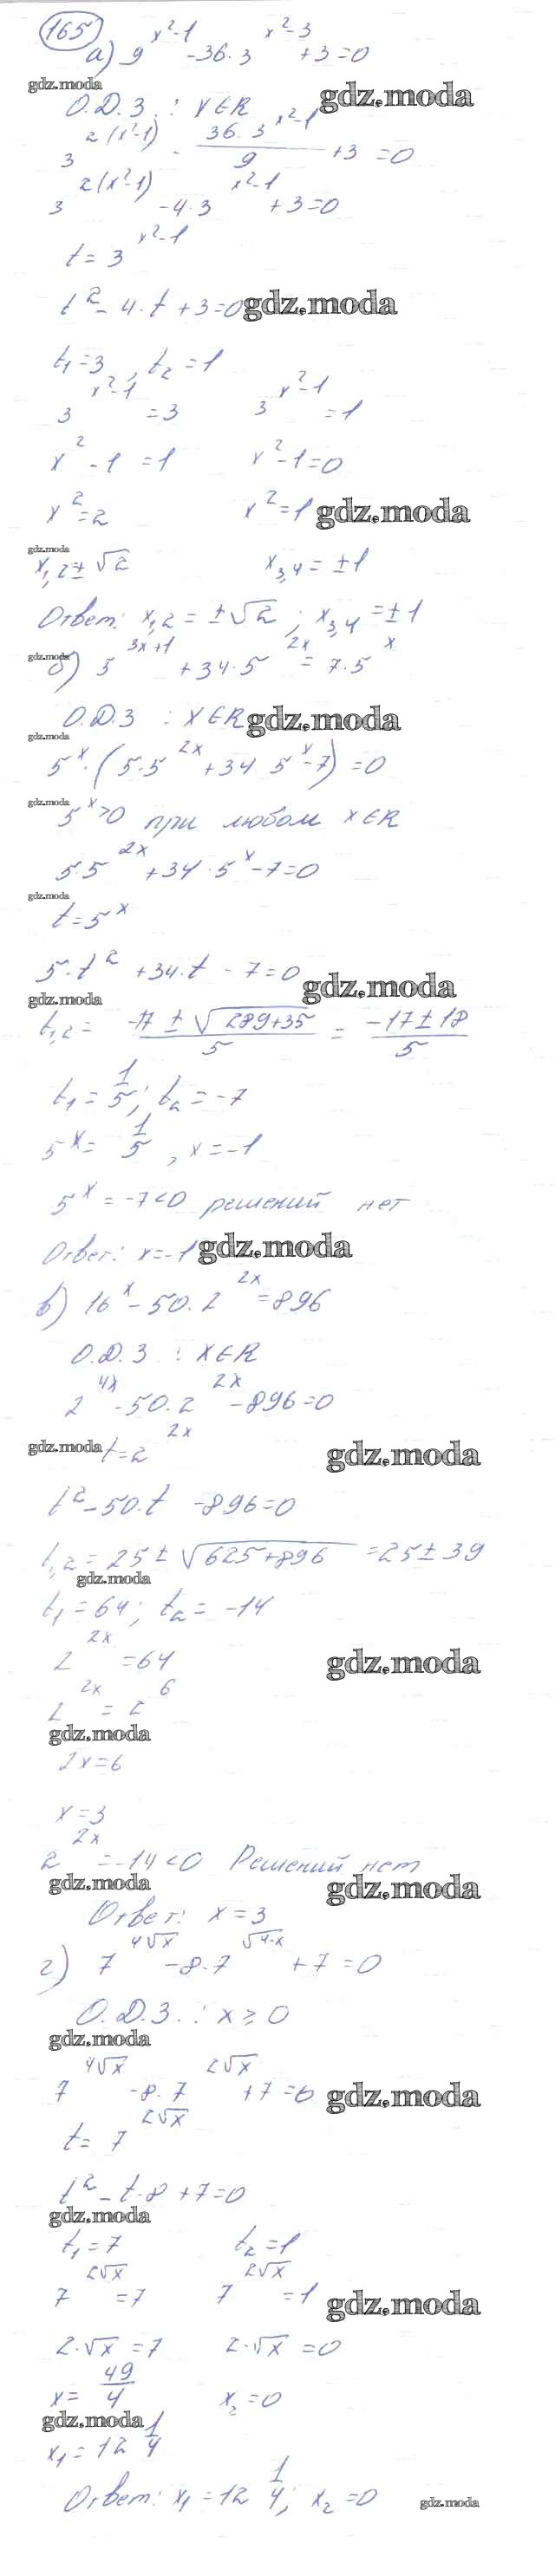 165
а) 9^(x²-1) - 36·3^(x²-3) + 3 = 0
gdz.moda
О.Д.З.: x∈R gdz.moda
3^(2(x²-1)) - (36·3^(x²-1))/9 + 3 = 0
3^(2(x²-1)) - 4·3^(x²-1) + 3 = 0
t = 3^(x²-1)
t² - 4·t + 3 = 0 gdz.moda
t₁ = 3, t₂ = 1
3^(x²-1) = 3   3^(x²-1) = 1
x² - 1 = 1   x² - 1 = 0
x² = 2   x² = 1 gdz.moda
gdz.moda
x₁,₂ = ± √2   x₃,₄ = ±1
Ответ: x₁,₂ = ±√2; x₃,₄ = ±1
gdz.moda
б) 5^(3x+1) + 34·5^(2x) = 7·5^x
О.Д.З : x∈R gdz.moda
gdz.moda
5^x·(5·5^(2x) + 34 5^x - 7) = 0
gdz.moda
5^x > 0 при любом x∈R
5·5^(2x) + 34·5^x - 7 = 0
gdz.moda
t = 5^x
5·t² + 34·t - 7 = 0 gdz.moda
gdz.moda
t₁,₂ = (-17 ± √(289+35))/5 = (-17 ± 18)/5
t₁ = 1/5; t₂ = -7
5^x = 1/5, x = -1
5^x = -7 < 0 решений нет
Ответ: x = -1 gdz.moda
в) 16^x - 50·2^(2x) = 896
О.Д.З : x∈R
2^(4x) - 50·2^(2x) - 896 = 0
gdz.moda t = 2^(2x) gdz.moda
t² - 50·t - 896 = 0
t₁,₂ = 25 ± √(625+896) = 25 ± 39
gdz.moda
t₁ = 64; t₂ = -14
2^(2x) = 64 gdz.moda
2^(2x) = 2^6
gdz.moda
2x = 6
x = 3
2^(2x) = -14 < 0 Решений нет
gdz.moda gdz.moda
Ответ: x = 3
г) 7^(4√x) - 8·7^(√(4·x)) + 7 = 0
О.Д.З.: x ≥ 0
gdz.moda
7^(4√x) - 8·7^(2√x) + 7 = 0 gdz.moda
t = 7^(2√x)
t² - t·8 + 7 = 0
gdz.moda
t₁ = 7   t₂ = 1
7^(2√x) = 7   7^(2√x) = 1 gdz.moda
2·√x = 7   2·√x = 0
x = 49/4   x₂ = 0
gdz.moda
x₁ = 12 1/4
Ответ: x₁ = 12 1/4; x₂ = 0 gdz.moda